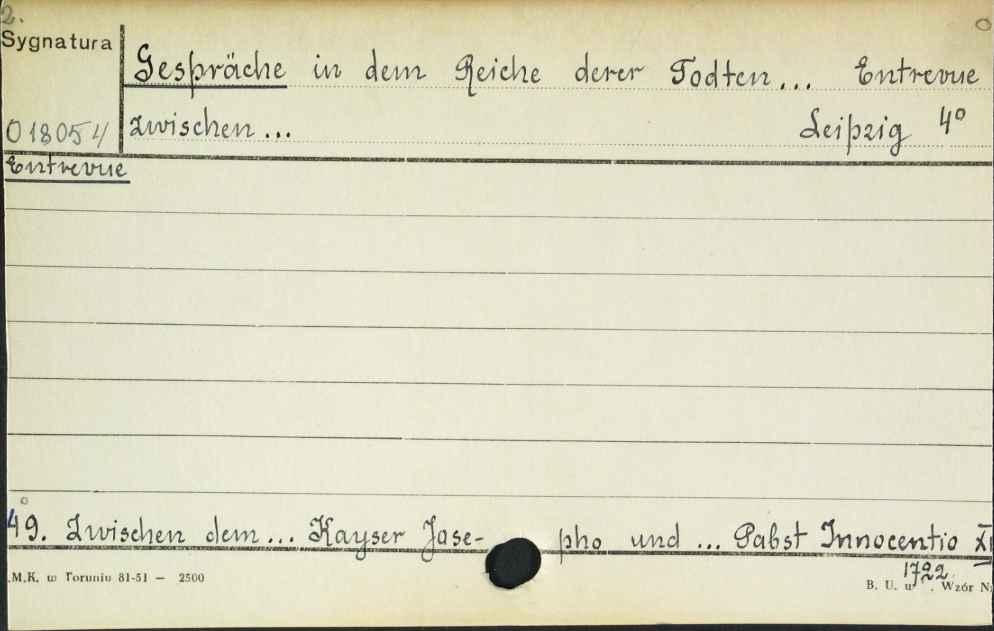 2.
Sygnatura
Gespräche in dem Reiche derer Todten... Entrevue
018054 zwischen... Leipzig 4°
Entrevue
49. Zwischen dem... Kayser Jose- pho und ... Pabst Innocentio
1722.
.M.K. w Toruniu 81-51 — 2500
B. U. w . Wzór